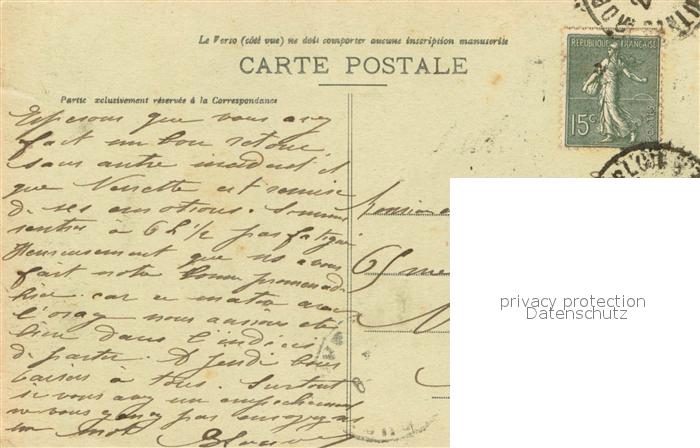 Le Verso (côté vue) ne doit comporter aucune inscription manuscrite
CARTE POSTALE
Partie exclusivement réservée à la Correspondance
REPUBLIQUE FRANÇAISE
15c
POSTES
Esperons que vous avez
fait un bon retour
sans autre incident et
que Nenette est remise
de ses emotions. Sommes
rentrés à 6 h ½ pas fatigués
Heureusement que ns avons
fait notre bonne promenade
hier car ce matin avec
l'orage nous aurions été
bien dans l'indécis
de partir. A Jeudi bons
baisers à tous. Surtout
si vous avez un empechement
ne vous genez pas envoyez
un mot
Monsieur
65 rue
privacy protection
Datenschutz